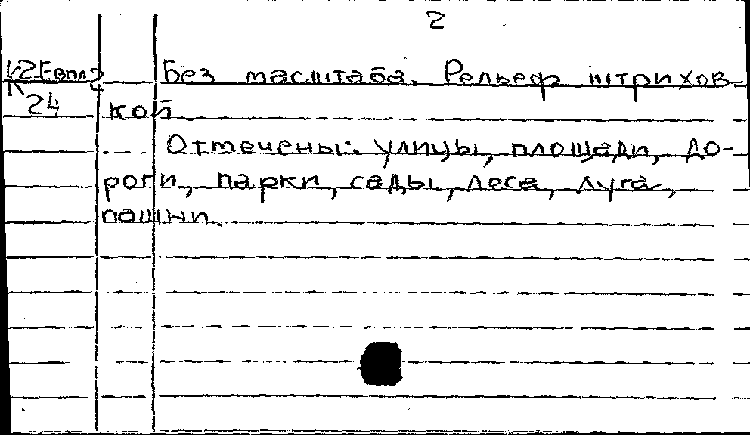 2
Без масштаба. Рельеф штрихов-
24 кой.
Отмечены: улицы, площади, до-
роги, парки, сады, леса, луга,
пашни.